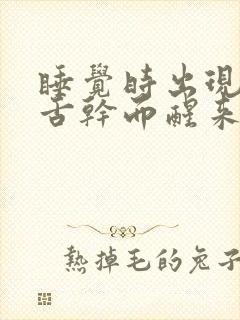 睡覺時出現
舌幹而醒來
熱掉毛的兔子